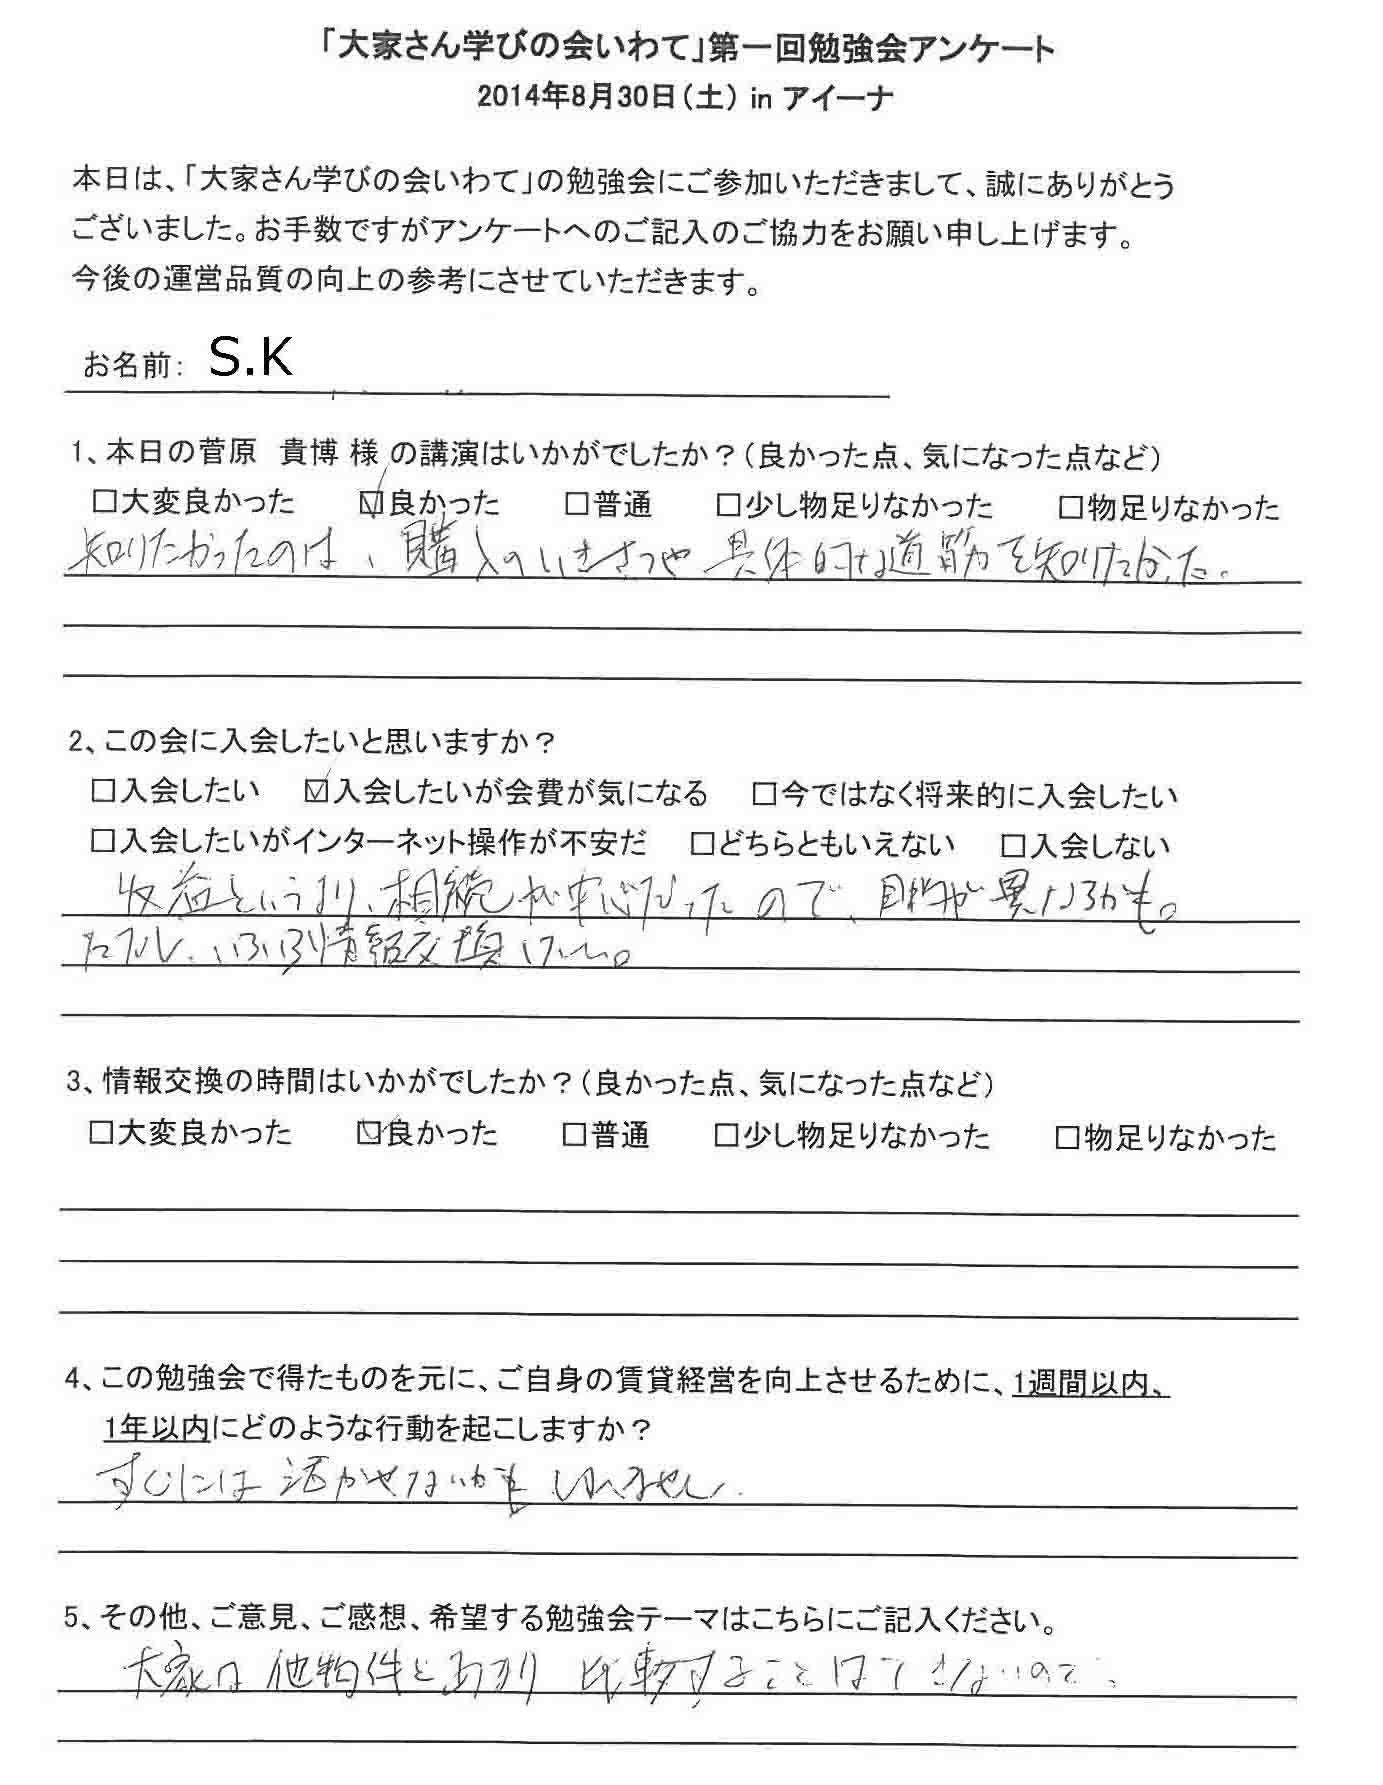 「大家さん学びの会いわて」第一回勉強会アンケート
2014年8月30日（土） in アイーナ
本日は、「大家さん学びの会いわて」の勉強会にご参加いただきまして、誠にありがとう
ございました。お手数ですがアンケートへのご記入のご協力をお願い申し上げます。
今後の運営品質の向上の参考にさせていただきます。
お名前： S.K
1、本日の菅原　貴博 様 の講演はいかがでしたか？（良かった点、気になった点など）
□大変良かった ☑良かった □普通 □少し物足りなかった □物足りなかった
知りたかったのは、購入のいきさつや具体的な道筋を知りたかった。
2、この会に入会したいと思いますか？
□入会したい ☑入会したいが会費が気になる □今ではなく将来的に入会したい
□入会したいがインターネット操作が不安だ □どちらともいえない □入会しない
収益というより、相続が中心だったので、目的が異なるかも。
ただし、いろいろ情報交換したい。
3、情報交換の時間はいかがでしたか？（良かった点、気になった点など）
□大変良かった ☑良かった □普通 □少し物足りなかった □物足りなかった
4、この勉強会で得たものを元に、ご自身の賃貸経営を向上させるために、1週間以内、
1年以内にどのような行動を起こしますか？
すぐには活かせないかもしれません
5、その他、ご意見、ご感想、希望する勉強会テーマはこちらにご記入ください。
大家は他物件とあまり比較することはできないので、